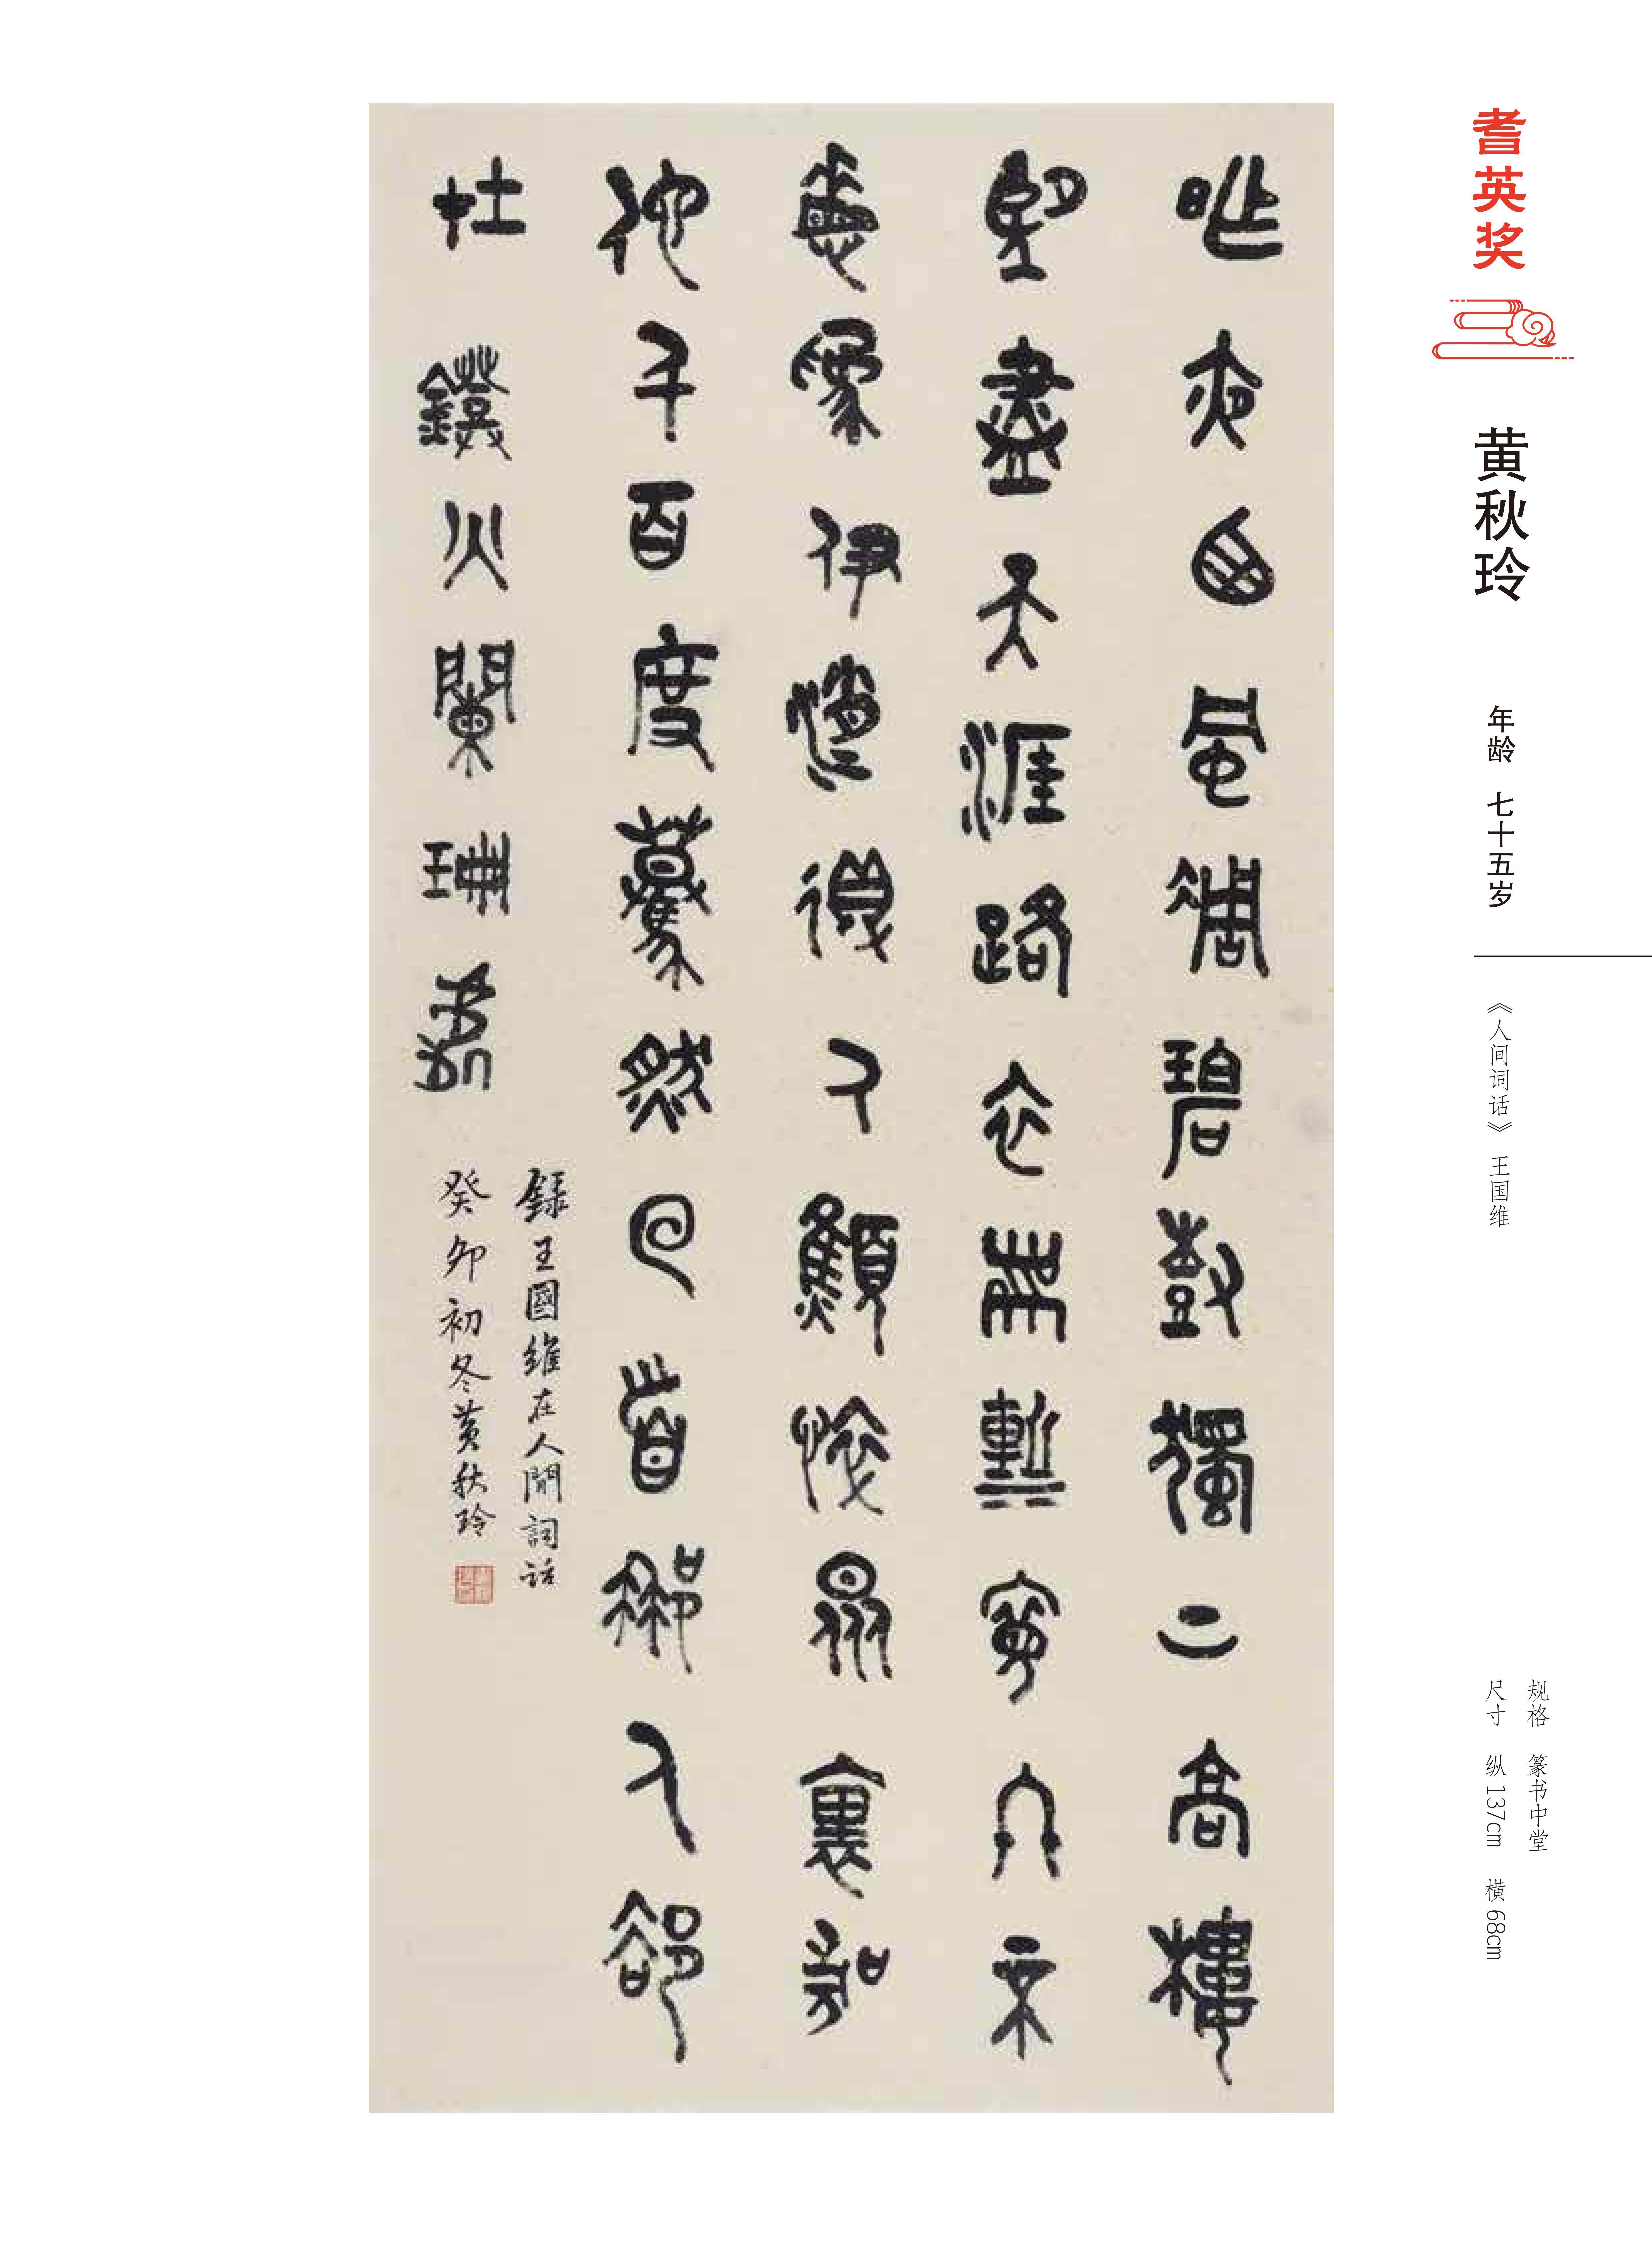 耆英奖
黄秋玲
年龄 七十五岁
《人间词话》 王国维
规格 篆书中堂
尺寸 纵137cm 横68cm
昨夜西風凋碧樹獨上高樓
望盡天涯路衣帶漸寬終不
悔爲伊消得人憔悴衆裏尋
他千百度驀然回首那人卻
在鐙火闌珊處
錄王國維在人間詞話
癸卯初冬黄秋玲